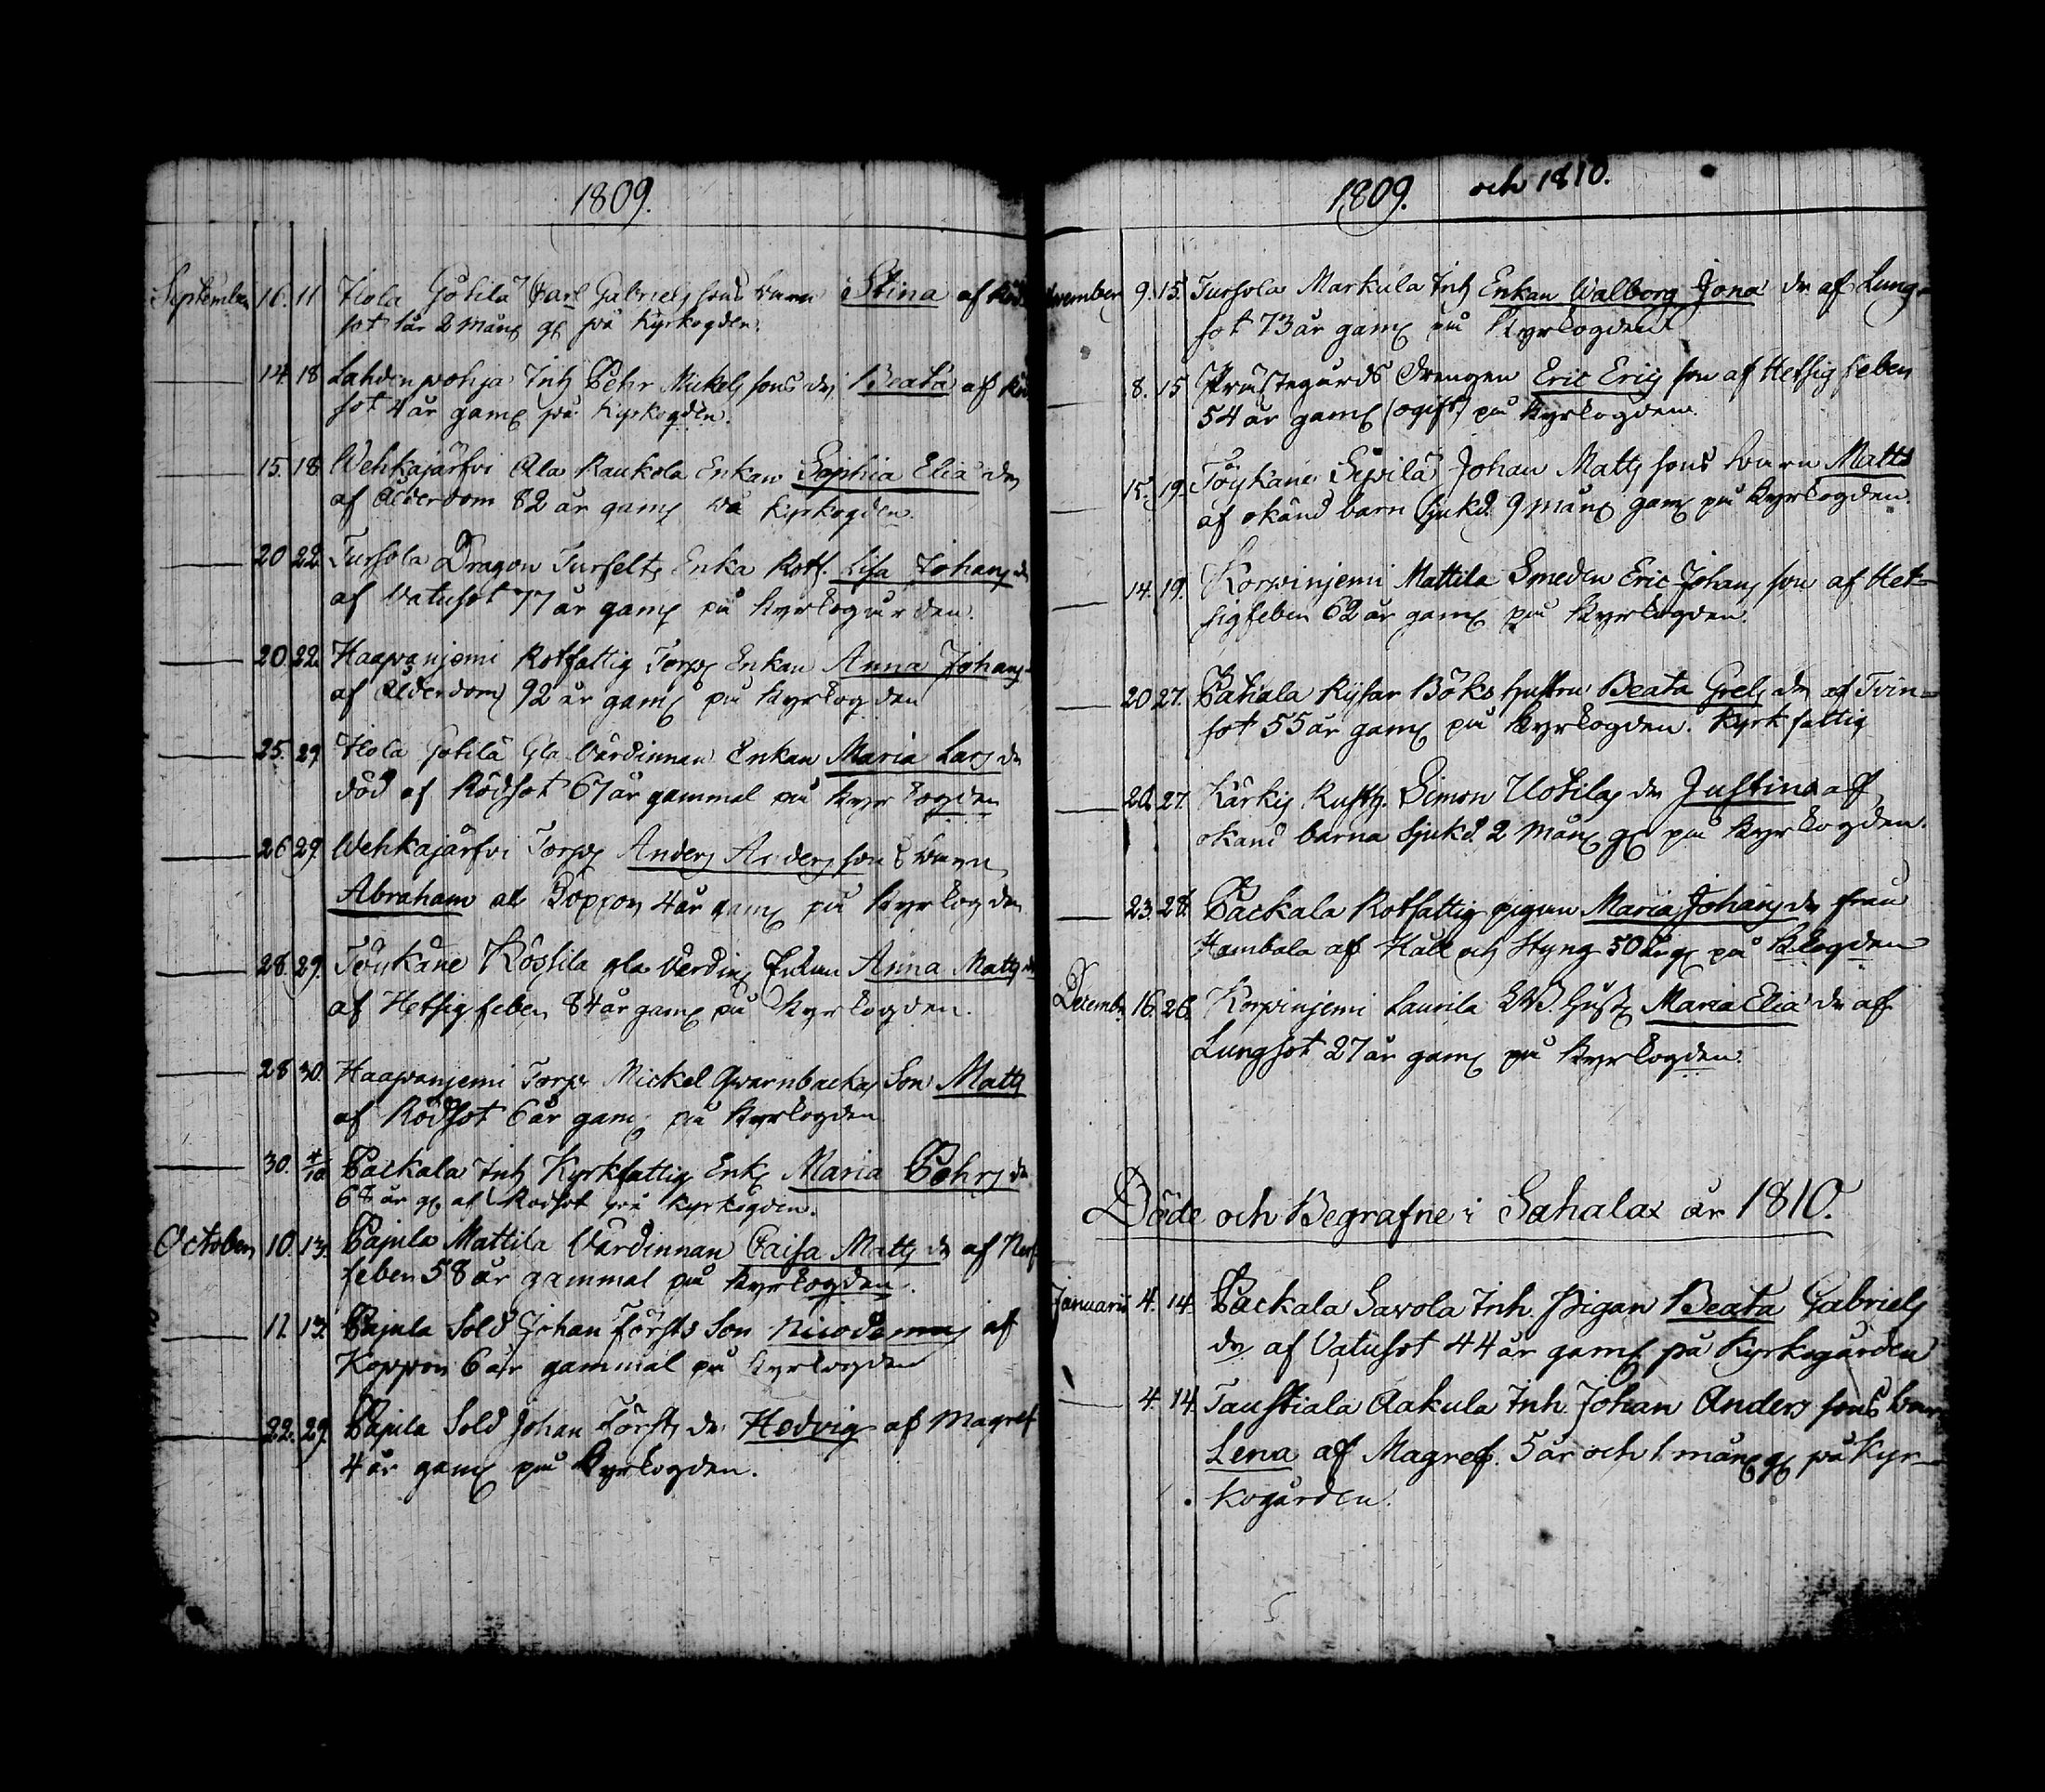 1809.
September 16. 11 Tiola Götilä Carl Gabriels sons barn Stina af Röd
sot 1 år 2 mån g på Kyrkogden.
14. 18 Lahdenpohja Inh Pehr Mickels sons dr Beata af Rö
sot 4 år gam på Kyrkogden.
15. 18 Wehkajärfvi Ala Raukola Enkan Sophia Elia dr
af Ålderdom 82 år gam på Kyrkogden.
20 22 Tursola Dragon Turfelts Enka Rotf. Lisa Johans dr
af Vatusot 77 år gam på Kyrkogården.
20. 22. Haapanjemi Rotfattig Torp Enkan Anna Johans
af Ålderdom 92 år gam på Kyrkogden
25. 29 Tiola Götilä Gla Värdinnan Enkan Maria Lars dr
död af Rödsot 67 år gammal på Kyrkogden
26 29 Wehkajärfvi Torp Anders Anders sons barn
Abraham af Koppor 4 år gam på Kyrkogden
28. 29. Töykäne Kössilä gla Värdin Enkan Anna Matts dr
af Hetsigfeber 84 år gam på Kyrkogden.
28 30. Haapanjemi Torp Mickel Qwarnbackas Son Matts
af Rödsot 6 år gam på Kyrkogden
30. 4/10 Packala Inh Kyrkfattig Enk Maria Pehrs dr
68 år g af Rödsot på Kyrkogden.
October 10. 13. Pajula Mattila Värdinnan Caisa Matts dr af
feber 58 år gammal på Kyrkogden.
11. 13. Pajula Sold Johan Försts Son Nicodemus af
Koppor 6 år gammal på Kyrkogden
22. 29. Pajula Sold Johan Försts dr Hedvig af Magref
4 år gam på Kyrkogden.
1809. och 1810.
November 9. 15. Tursola Markula Inh Enkan Walborg Jona dr af Lung-
sot 73 år gam på Kyrkogden
8. 15 Prästegårds Drengen Eric Erics son af Hetsig feber
54 år gam (ogift) på Kyrkogden.
15. 19. Töykäne Sipilä Johan Matts sons barn Matts
af okänd barn sjukd. 9 mån gam på Kyrkogden.
14. 19. Korpinjemi Mattila Smeden Eric Johans son af Het-
sigfeber 62 år gam på Kyrkogden.
20 27. Pakala Ryttar Böks hustru Beata Grels dr af Tvin-
sot 55 år gam på Kyrkogden. Kyrk fattig
20. 27. Kärkis Rusth. Simon Uotilas dr Justina af
okänd barna sjukd. 2 mån g på Kyrkogden.
23. 28. Packala Rotfattig pigan Maria Johans dr från
Hambala af Håll och Styng 50 år g på Kkogden
December 16. 26. Korpinjemi Laurila Hust Maria Elia dr af
Lungsot 27 år gam på Kyrkogden.
Döde och Begrafne i Sahalax år 1810.
Januarii 4. 14. Packala Savola Inh. Pigan Beata Gabriels
dr af Vatusot 44 år gam på Kyrkogården
4. 14. Taustiala Aakula Inh Johan Anders sons barn
Lena af Magref. 5 år och 1 mån g på Kyr-
kogården.